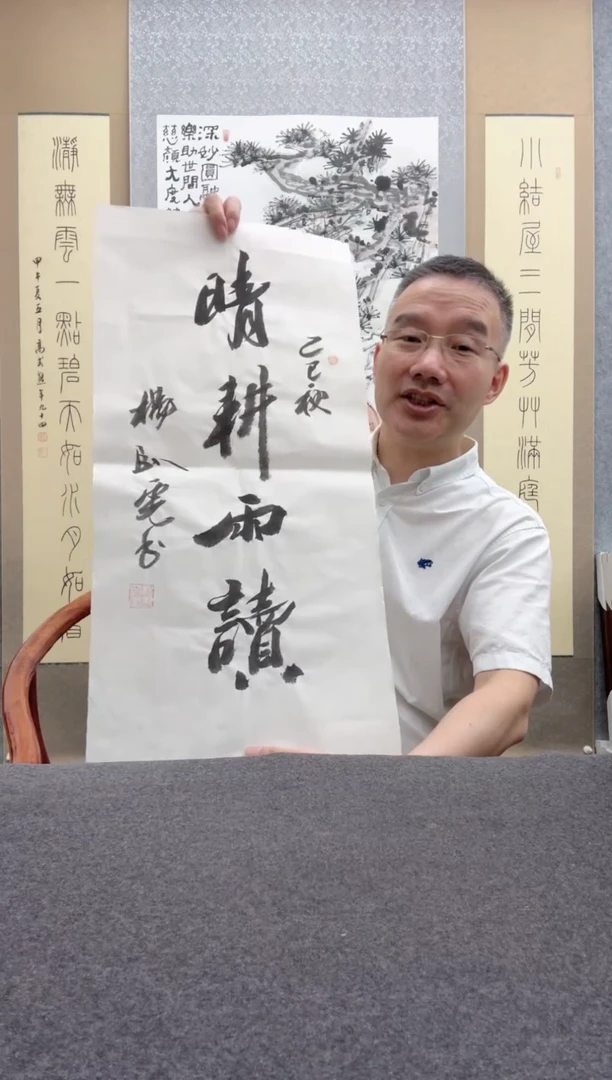 小結屋三間芳艸滿庭
深妙圓融
樂助世間人
慈顏大度
乙巳秋
晴耕雨讀
楊臥雲书
瀞無雲一點碧天如水月如眉
甲午夏五月高式熊年九十四